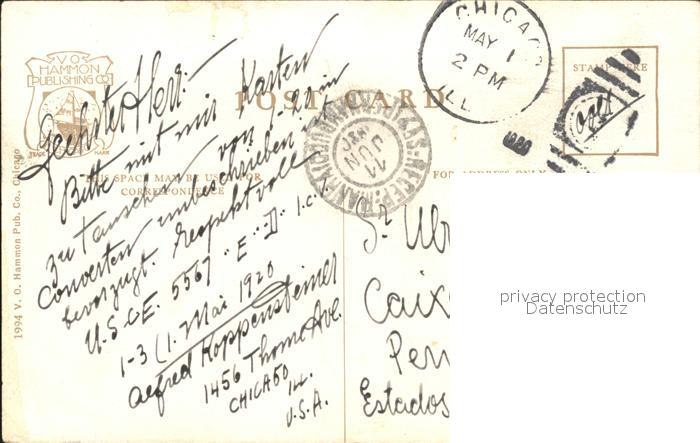 V.O.
HAMMON
PUBLISHING CO
TRADE MARK
POST CARD
THIS SPACE MAY BE USED FOR
CORRESPONDENCE
FOR ADDRESS ONLY
STAMP HERE
1994 V. O. Hammon Pub. Co., Chicago
CHICAGO
MAY 1
2 PM
ILL.
1920
11
JUN
Geehrter Herr:
Bitte mit mir Karten
zu tauschen von
Converten unbeschrieben ist
bevorzugt. Respektvoll
U.S.C.E. 5567 "E" "D" I.C.
1-3 (1. Mai 1920
Alfred Koppensteiner
1456 Thome Ave.
CHICAGO
ILL.
U.S.A.
Sr. Ub
Caix
Per
Estados
privacy protection
Datenschutz